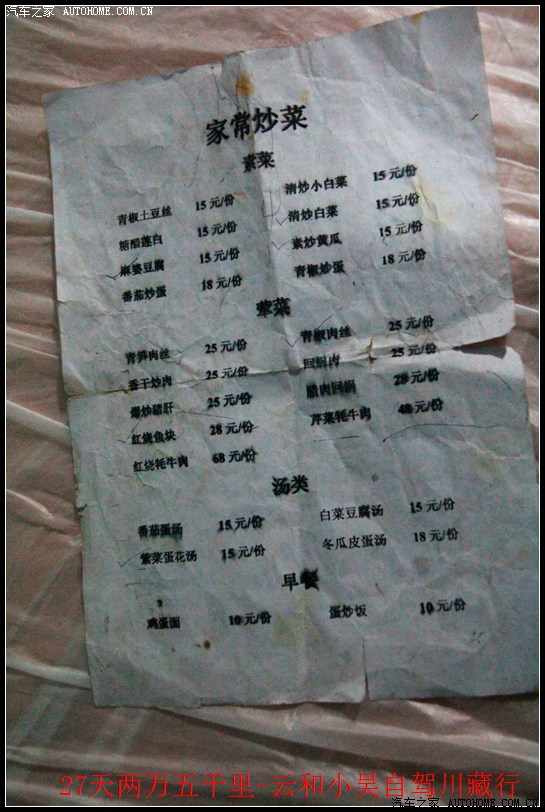 汽车之家 AUTOHOME.COM.CN
家常炒菜
素菜
青椒土豆丝 15 元/份 清炒小白菜 15 元/份
糖醋莲白 15 元/份 清炒白菜 15 元/份
麻婆豆腐 15 元/份 素炒黄瓜 15 元/份
番茄炒蛋 18 元/份 青椒炒蛋 18 元/份
荤菜
青笋肉丝 25 元/份 青椒肉丝 25 元/份
香干炒肉 25 元/份 回锅肉 25 元/份
爆炒猪肝 25 元/份 腊肉回锅 28 元/份
红烧鱼块 28 元/份 芹菜牦牛肉 48 元/份
红烧牦牛肉 68 元/份
汤类
番茄蛋汤 15 元/份 白菜豆腐汤 15 元/份
紫菜蛋花汤 15 元/份 冬瓜皮蛋汤 18 元/份
早餐
鸡蛋面 10 元/份 蛋炒饭 10 元/份
27天两万五千里-云和小吴自驾川藏行
汽车之家 AUTOHOME.COM.CN